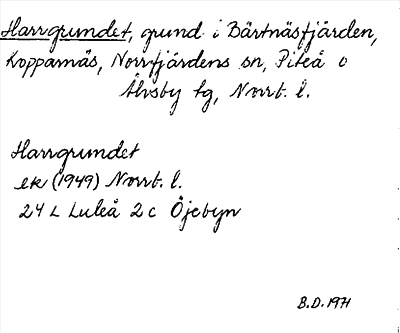 Harrgrundet, grund i Bärtnäsfjärden,
Kopparnäs, Norrfjärdens sn, Piteå o
Älvsby tg, Norrb. l.
Harrgrundet
ek (1949) Norrb. l.
24 L Luleå 2 c Öjebyn
B.D. 1971